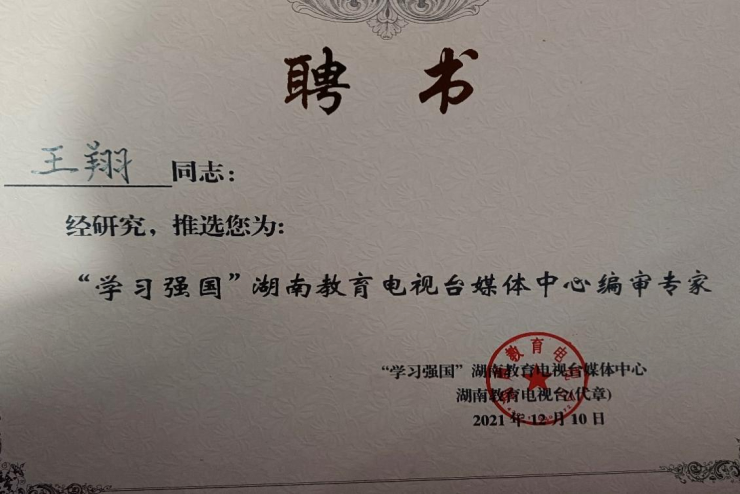 聘书
王翔同志：
经研究，推选您为：
“学习强国”湖南教育电视台媒体中心编审专家
“学习强国”湖南教育电视台媒体中心
湖南教育电视台(代章)
2021年12月10日